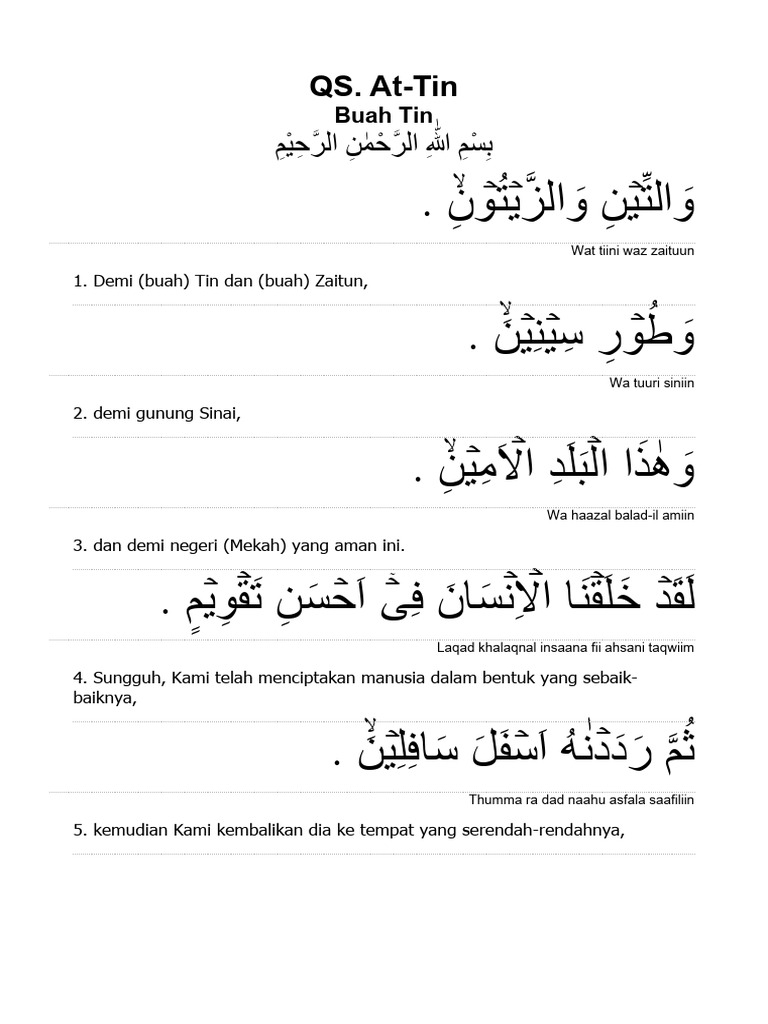 QS. At-Tin
Buah Tin
بِسْمِ اللّٰهِ الرَّحْمٰنِ الرَّحِيْمِ
وَالتِّيْنِ وَالزَّيْتُوْنِۙ .
Wat tiini waz zaituun
1. Demi (buah) Tin dan (buah) Zaitun,
وَطُوْرِ سِيْنِيْنَۙ .
Wa tuuri siniin
2. demi gunung Sinai,
وَهٰذَا الْبَلَدِ الْاَمِيْنِۙ .
Wa haazal balad-il amiin
3. dan demi negeri (Mekah) yang aman ini.
لَقَدْ خَلَقْنَا الْاِنْسَانَ فِىْۤ اَحْسَنِ تَقْوِيْمٍ .
Laqad khalaqnal insaana fii ahsani taqwiim
4. Sungguh, Kami telah menciptakan manusia dalam bentuk yang sebaik-
baiknya,
ثُمَّ رَدَدْنٰهُ اَسْفَلَ سَافِلِيْنَۙ .
Thumma ra dad naahu asfala saafiliin
5. kemudian Kami kembalikan dia ke tempat yang serendah-rendahnya,